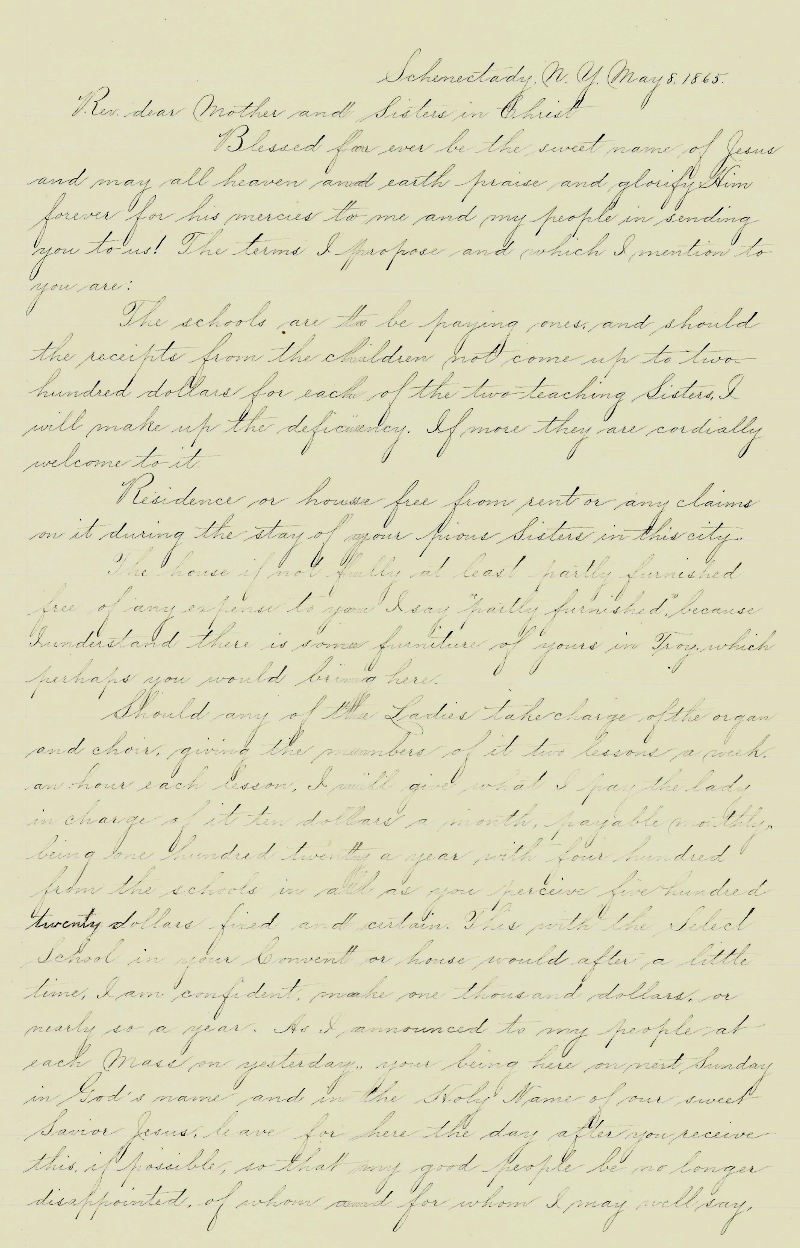 Schenectady, N. Y. May 8. 1865.
Rev. dear Mother and Sisters in Christ
Blessed for ever be the sweet name of Jesus
and may all heaven and earth praise and glorify Him
forever for his mercies to me and my people in sending
you to us! The terms I propose and which I mention to
you are:
The schools are to be paying ones, and should
the receipts from the children not come up to two
hundred dollars for each of the two teaching Sisters, I
will make up the deficiency. If more they are cordially
welcome to it
Residence or house free from rent or any claims
on it during the stay of your pious Sisters in this city.
The house if not fully at least partly furnished
free of any expense to you I say "partly furnished", because
I understand there is some furniture of yours in Troy, which
perhaps you would bring here.
Should any of the Ladies take charge of the organ
and choir, giving the members of it two lessons a week,
an hour each lesson, I will give what I pay the lady
in charge of it ten dollars a month, payable monthly,
being one hundred twenty a year with four hundred
from the schools in all as you perceive five hundred
twenty dollars fixed and certain. This with the Select
School in your Convent or house would after a little
time, I am confident, make one thousand dollars, or
nearly so a year. As I announced to my people at
each Mass on yesterday, your being here on next Sunday
in God's name and in the Holy Name of our sweet
Savior Jesus, leave for here the day after you receive
this, if possible, so that my good people be no longer
disappointed, of whom and for whom I may well say,